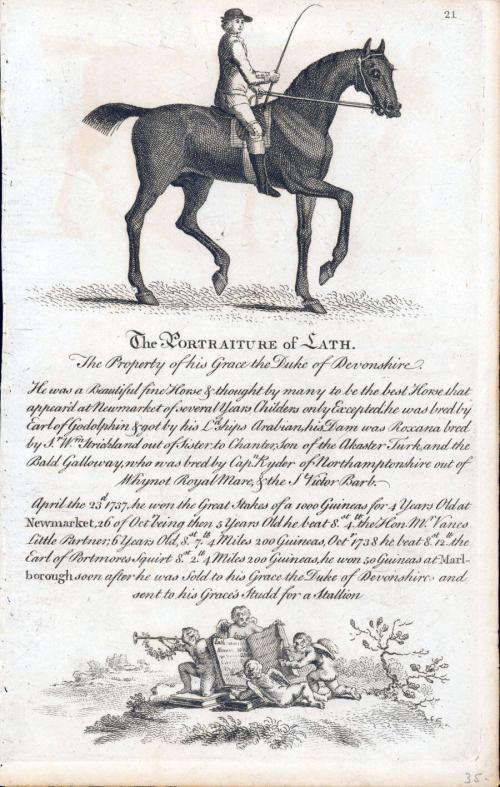 21
The PORTRAITURE of LATH.
The Property of his Grace the Duke of Devonshire.
He was a Beautiful fine Horse & thought by many to be the best Horse that
appear'd at Newmarket of several Years Childers only Excepted, he was bred by
Earl of Godolphin & got by his Ld.ships Arabian, his Dam was Roxana bred
by Sr. Wm. Strickland out of Sister to Chanter, Son of the Akaster Turk, and the
Bald Galloway, who was bred by Capn. Ryder of Northamptonshire out of
Whynot Royal Mare, & the St. Victor Barb.
April the 23d 1737, he won the Great Stakes of a 1000 Guineas for 4 Years Old at
Newmarket, 26 of Octr. being then 5 Years Old he beat 8st. 4th. the Hon. Mr. Vanes
Little Partner, 6 Years Old, 8st. 7th. 4 Miles 200 Guineas, Octr. 1738 he beat 8st. 12th. the
Earl of Portmores Squirt 8st. 2th. 4 Miles 200 Guineas, he won 50 Guineas at Marl-
borough soon after he was Sold to his Grace the Duke of Devonshire and
sent to his Grace's Studd for a Stallion
35-